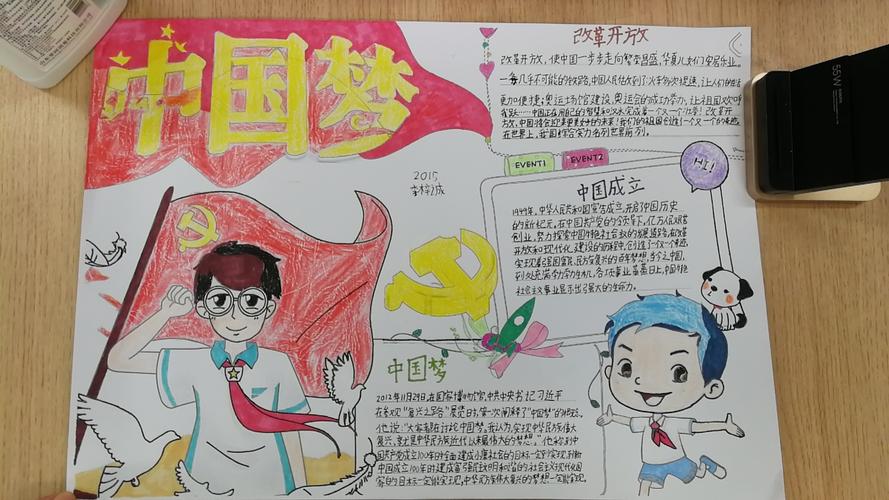 中国梦
改革开放
改革开放,使中国一步步走向繁荣昌盛,华夏儿女们安居乐业。
一每几乎不可能的铁路,中国人民估攻到了;火车多次提速,让人们的生活
更加便捷;奥运场馆建设,奥运会的成功举办,让祖国欢呼
……中国正在用自己的智慧和汗水完成着一个又一个壮举!改革开
放,中国将会迎来更美好的未来!我们的祖国创造了一个又一个的奇迹,
在世界上,我国综合实力名列世界前列。
EVENT1
EVENT2
HI!
2015
李梓诚
中国成立
1949年,中华人民共和国宣告成立,开启了中国历史
的新纪元。在中国共产党的领导下,亿万人民艰苦
创业,努力探索中国特色社会主义的发展道路,在改革
开放和现代化建设的历程中,创造了一个又一个奇迹,
实现着国富民,民族复兴的百年梦想。当今之中国,
到处充满勃勃生机,各项事业蒸蒸日上,中国特色
社会主义事业显示出强大的生命力。
中国梦
2012年11月29日,在国家博物馆,中共中央书记习近平
在参观“复兴之路”展览时,第一次阐释了“中国梦”的概念。
他说:“大家都在讨论中国梦。我认为,实现中华民族伟大
复兴,就是中华民族近代以来最伟大的梦想。”他称,到中
国共产党成立100年时全面建成小康社会的目标一定能实现,到新
中国成立100年时建成富强民主文明和谐的社会主义现代化国
家的目标一定能实现,中华民族伟大复兴的梦想一定能实现。
55W